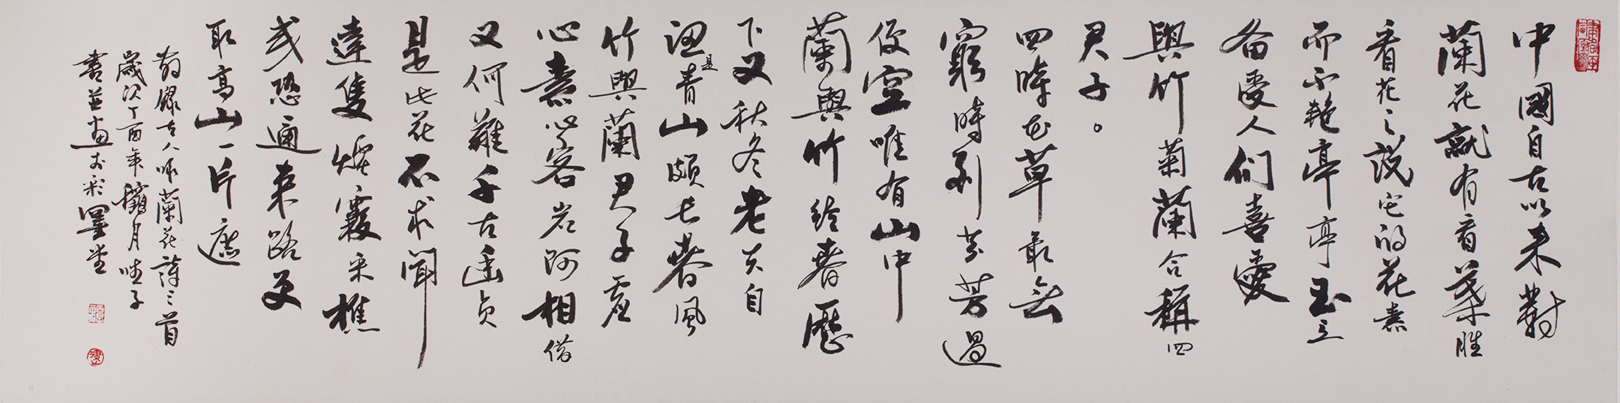 中國自古以来對
蘭花就有看葉勝
看花之說它的花素
而不艳亭亭玉立
备受人们喜愛
與竹菊蘭合稱四
君子。
四時花草最無
窮時到芬芳過
便空唯有山中
蘭與竹经春歷
下又秋冬老夫自
是青山頗長春風
竹與蘭君子虛
心素心客岩阿相借
又何難千古幽貞
是此花不求聞
達隻煙霞采樵
或恐通来路更
取高山一片遮
錄古人咏蘭花詩三首
歲次丁酉年臘月
書並畫於彩墨堂